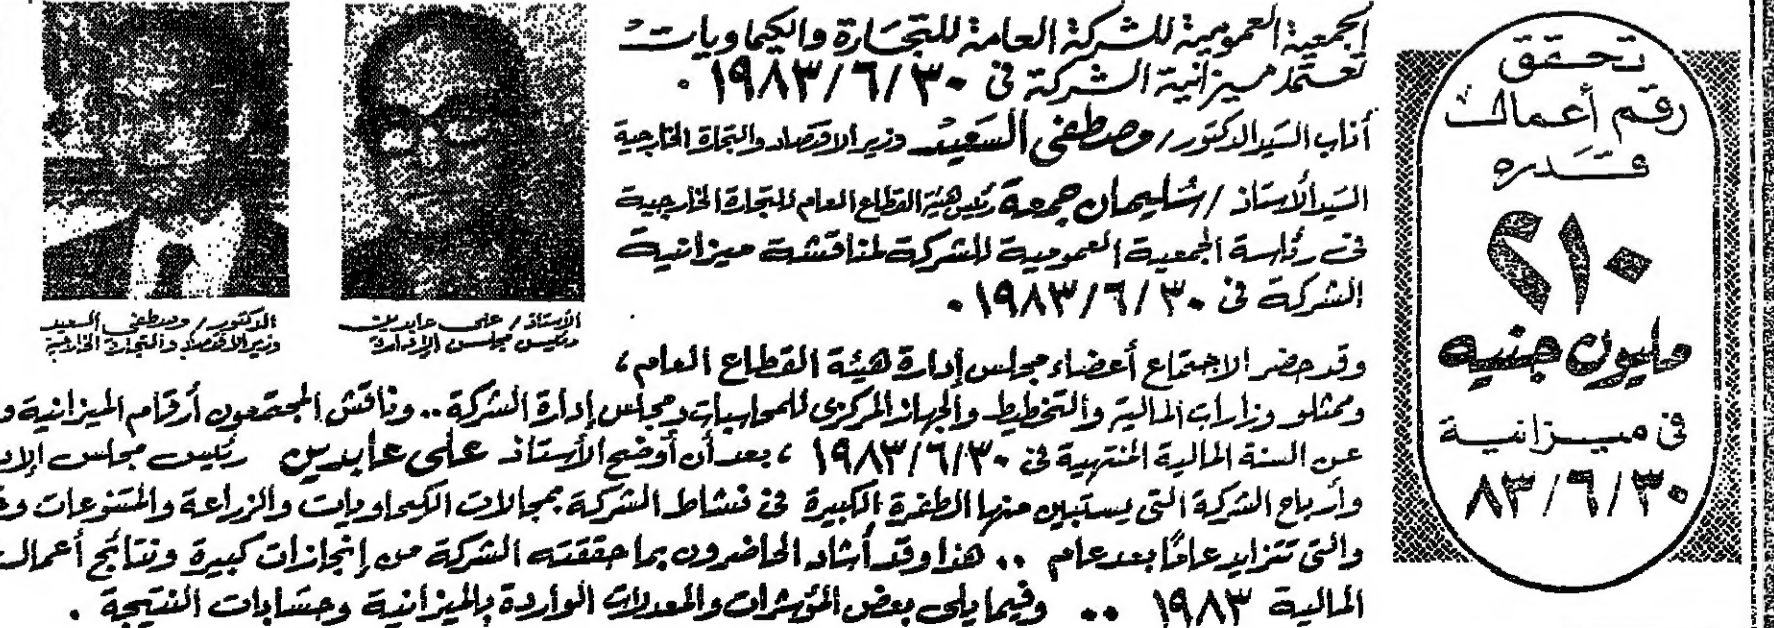 تحقق
رقم أعمال
قدره
٢١٠
مليون جنيه
في ميزانية
٨٣/٦/٣٠
الجمعية العمومية للشركة العامة للتجارة والكيماويات
تعتمد ميزانية الشركة في ١٩٨٣/٦/٣٠ .
أناب السيد الدكتور / مصطفى السعيد وزير الاقتصاد والتجارة الخارجية
السيد الأستاذ / سليمان جمعة رئيس هيئة القطاع العام للتجارة الخارجية
في رئاسة الجمعية العمومية للشركة لمناقشة ميزانية
الشركة في ١٩٨٣/٦/٣٠ .
الأستاذ / على عابدين
رئيس مجلس الإدارة
الدكتور / مصطفى السعيد
وزير الاقتصاد والتجارة الخارجية
وقد حضر الاجتماع أعضاء مجلس إدارة هيئة القطاع العام ،
وممثلو وزارات المالية والتخطيط والجهاز المركزى للمحاسبات ومجلس إدارة الشركة .. وناقش المجتمعون أرقام الميزانية و
عن السنة المالية المنتهية في ١٩٨٣/٦/٣٠ ، بعد أن أوضح الأستاذ على عابدين رئيس مجلس الإد
وأرباح الشركة التى يستبين منها الطفرة الكبيرة في نشاط الشركة بمجالات الكيماويات والزراعة والمتنوعات و
والتى تتزايد عامًا بعد عام .. هذا وقد أشاد الحاضرون بما حققته الشركة من إنجازات كبيرة ونتائج أعمال
المالية ١٩٨٣ .. وفيما يلى بعض المؤشرات والمعدلات الواردة بالميزانية وحسابات النتيجة .